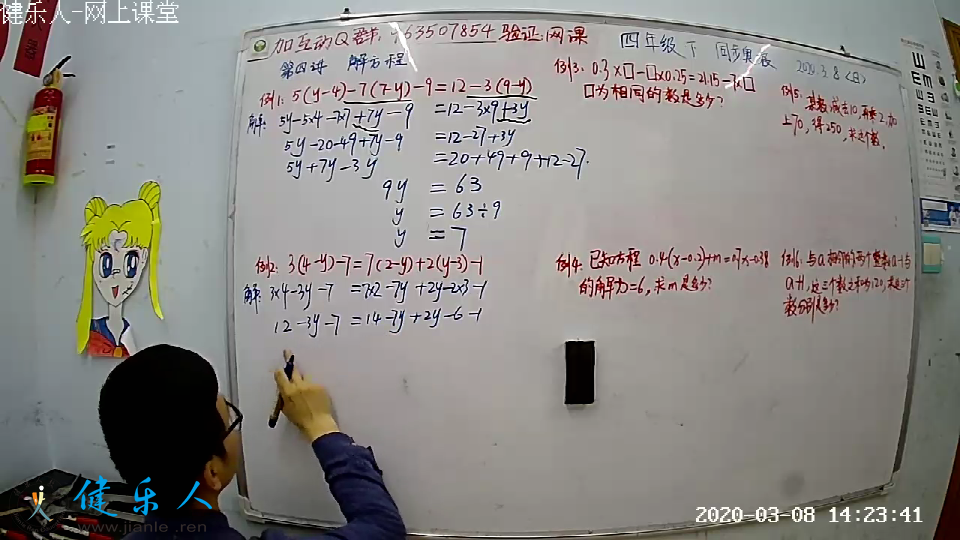 健乐人-网上课堂
加互动Q群:963507854 验证:网课
四年级下 同步奥展
2020.3.8(日)
第四讲 解方程
例1: 5(y-4)-7(7-y)-9=12-3(9-y)
解: 5y-5×4-7×7+7y-9 =12-3×9+3y
5y-20-49+7y-9 =12-27+3y
5y+7y-3y =20+49+9+12-27.
9y = 63
y = 63÷9
y = 7
例2: 3(4-y)-7=7(2-y)+2(y-3)-1
解: 3×4-3y-7 =7×2-7y+2y-2×3-1
12-3y-7=14-7y+2y-6-1
例3: 0.3×□-□×0.25=21.15-7×□
□为相同的数是多少?
例4: 已知方程 0.4(x-0.2)+m=0.7x-0.38
的解为x=6,求m是多少?
例5: 某数减去10,再乘2,加
上70,得250,求这个数。
例6: 与a相邻的两个整数a-1与
a+1,这三个数之和为120,求这三个
数分别是多少?
健乐人
www.jianle.ren
2020-03-08 14:23:41